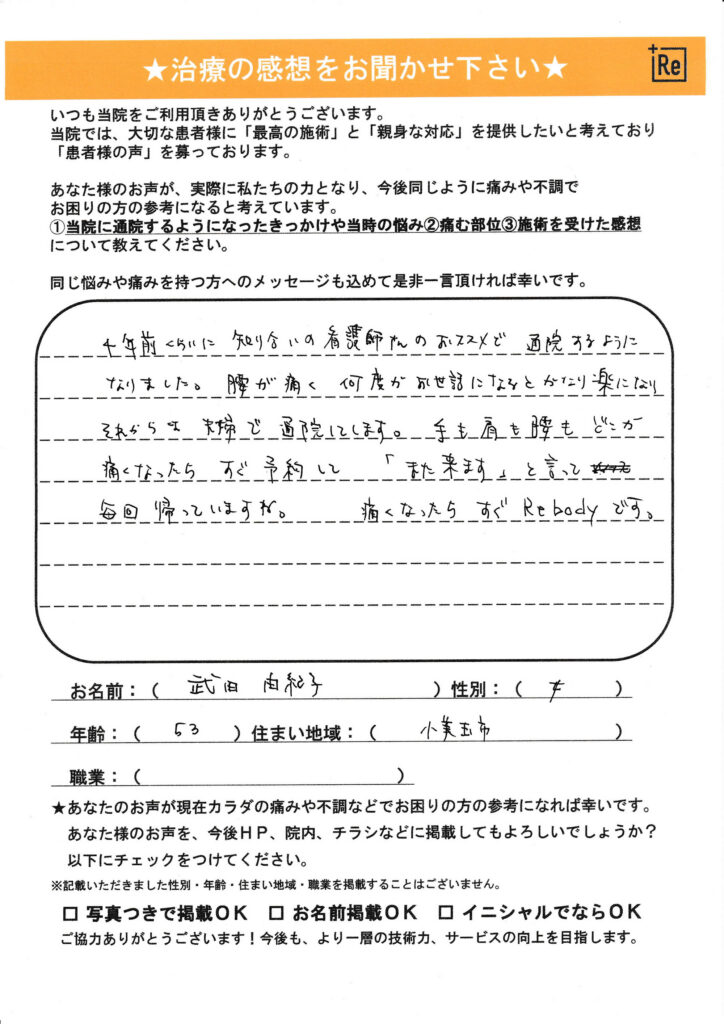 ★治療の感想をお聞かせ下さい★
Re
いつも当院をご利用頂きありがとうございます。
当院では、大切な患者様に「最高の施術」と「親身な対応」を提供したいと考えており
「患者様の声」を募っております。
あなた様のお声が、実際に私たちの力となり、今後同じように痛みや不調で
お困りの方の参考になると考えています。
①当院に通院するようになったきっかけや当時の悩み②痛む部位③施術を受けた感想
について教えてください。
同じ悩みや痛みを持つ方へのメッセージも込めて是非一言頂ければ幸いです。
年前くらいに 知り合いの看護師さんのおススメで 通院するように
なりました。腰が痛く 何度か お世話になるとかなり楽になり
それからは 夫婦で 通院してします。手も肩も腰も どこか
痛くなったら すぐ予約して 「また来ます」と言って
毎回帰っていますね。 痛くなったら すぐ Rebody です。
お名前：（ 武田 由紀子 ）性別：（ 女 ）
年齢：（ 53 ）住まい地域：（ 小美玉市 ）
職業：（ ）
★あなたのお声が現在カラダの痛みや不調などでお困りの方の参考になれば幸いです。
あなた様のお声を、今後ＨＰ、院内、チラシなどに掲載してもよろしいでしょうか？
以下にチェックをつけてください。
※記載いただきました性別・年齢・住まい地域・職業を掲載することはございません。
□ 写真つきで掲載ＯＫ □ お名前掲載ＯＫ □ イニシャルでならＯＫ
ご協力ありがとうございます！今後も、より一層の技術力、サービスの向上を目指します。